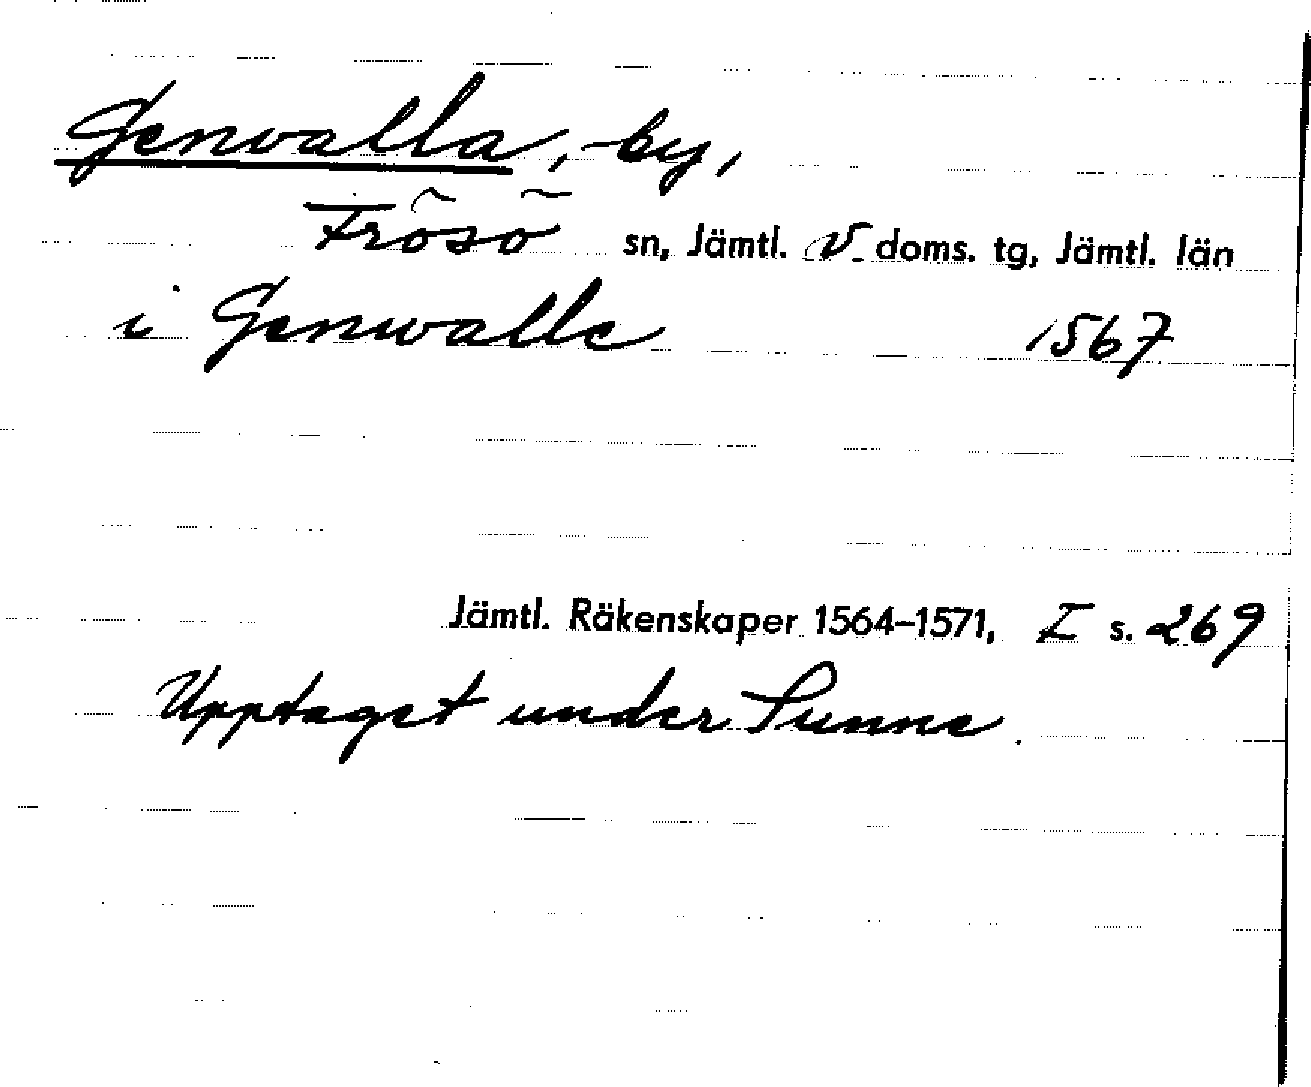 Genvalla, by,
Frösö sn, Jämtl. V. doms. tg, Jämtl. län
i Genwalle 1567
Jämtl. Räkenskaper 1564–1571, I s. 269
Upptaget under Sunne.